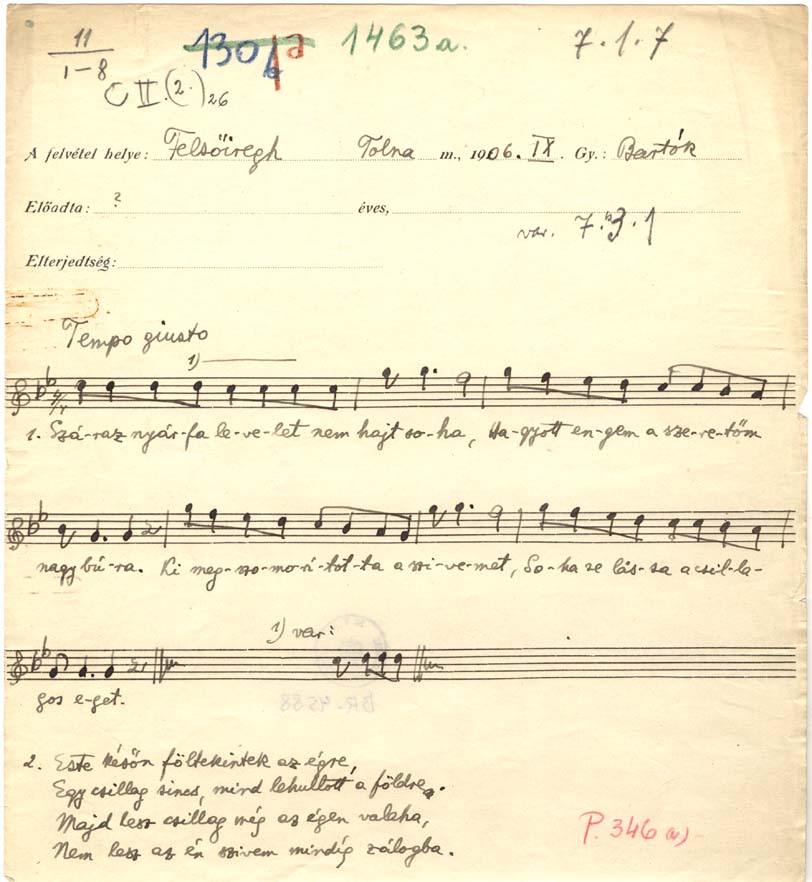 11
1-8
130/b a 1463a. 7.1.7
C II.(2.)26
A felvétel helye: Felsőiregh Tolna m., 1906. IX. Gy.: Bartók
Előadta: ? éves,
var. 7.3.1
Elterjedtség:
Tempo giusto
1)
1. Szá-raz nyár-fa le-ve-let nem hajt so-ha, Ha-gyott en-gem a sze-re-tőm
nagy bú-ra. Ki meg-szo-mo-rí-tot-ta a szi-ve-met, So-ha se lás-sa a csil-la-
1) var:
gos e-get.
BR-4588
2. Este későn föltekintek az égre,
Egy csillag sincs, mind lehullott a földre.
Majd lesz csillag még az égen valaha,
Nem lesz az én szivem mindig zálogba.
P. 346 a)